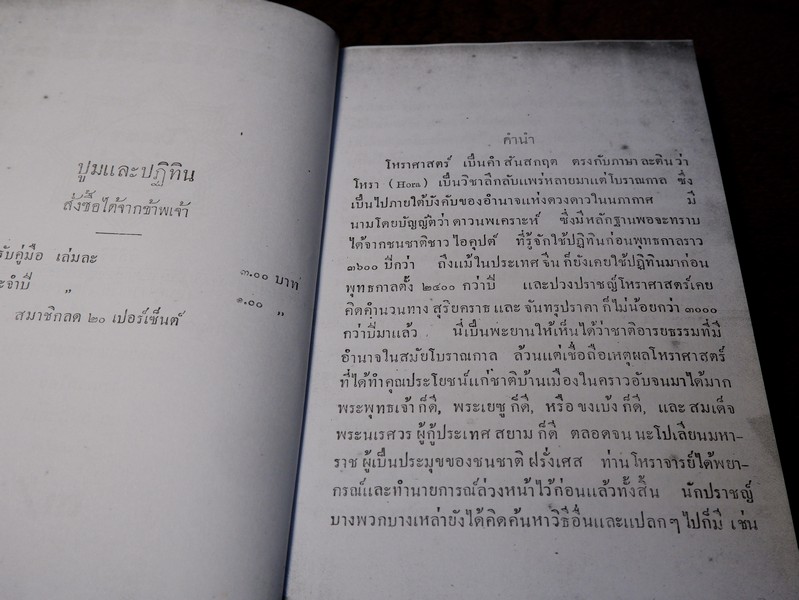 ปูมและปฏิทิน
สั่งซื้อได้จากข้าพเจ้า
รับคู่มือ เล่มละ ๓.๐๐ บาท
ะจำปี " ๑.๐๐ "
สมาชิกลด ๒๐ เปอร์เซ็นต์
คำนำ
โหราศาสตร์ เป็นคำ สันสกฤต ตรงกับภาษา ละติน ว่า
โหรา (Hora) เป็นวิชาลึกลับแพร่หลายมาแต่โบราณกาล ซึ่ง
เป็นไปภายใต้บังคับของอำนาจแห่งดวงดาวในนภากาศ มี
นามโดยบัญญัติว่า ดาวนพเคราะห์ ซึ่งมีหลักฐานพอจะทราบ
ได้จากชนชาติชาว ไอคุปต์ ที่รู้จักใช้ปฏิทินก่อนพุทธกาลราว
๓๖๐๐ ปีกว่า ถึงแม้ในประเทศ จีน ก็ยังเคยใช้ปฏิทินมาก่อน
พุทธกาลตั้ง ๒๔๐๐ กว่าปี และปวงปราชญ์โหราศาสตร์เคย
คิดคำนวนทาง สุริยคราธ และ จันทรุปราคา ก็ไม่น้อยกว่า ๓๐๐๐
กว่าปีมาแล้ว นี่เป็นพะยานให้เห็นได้ว่าชาติอารยธรรมที่มี
อำนาจในสมัยโบราณกาล ล้วนแต่เชื่อถือเหตุผลโหราศาสตร์
ที่ได้ทำคุณประโยชน์แก่ชาติบ้านเมืองในคราวอับจนมาได้มาก
พระพุทธเจ้า ก็ดี, พระเยซู ก็ดี, หรือ ขงเบ้ง ก็ดี, และ สมเด็จ
พระนเรศวร ผู้กู้ประเทศ สยาม ก็ดี ตลอดจน นะโปเลียนมหา-
ราช ผู้เป็นประมุขของชนชาติ ฝรั่งเศส ท่านโหราจารย์ได้พยา-
กรณ์และทำนายการณ์ล่วงหน้าไว้ก่อนแล้วทั้งสิ้น นักปราชญ์
บางพวกบางเหล่ายังได้คิดค้นหาวิธีอื่นและแปลก ๆ ไปก็มี เช่น